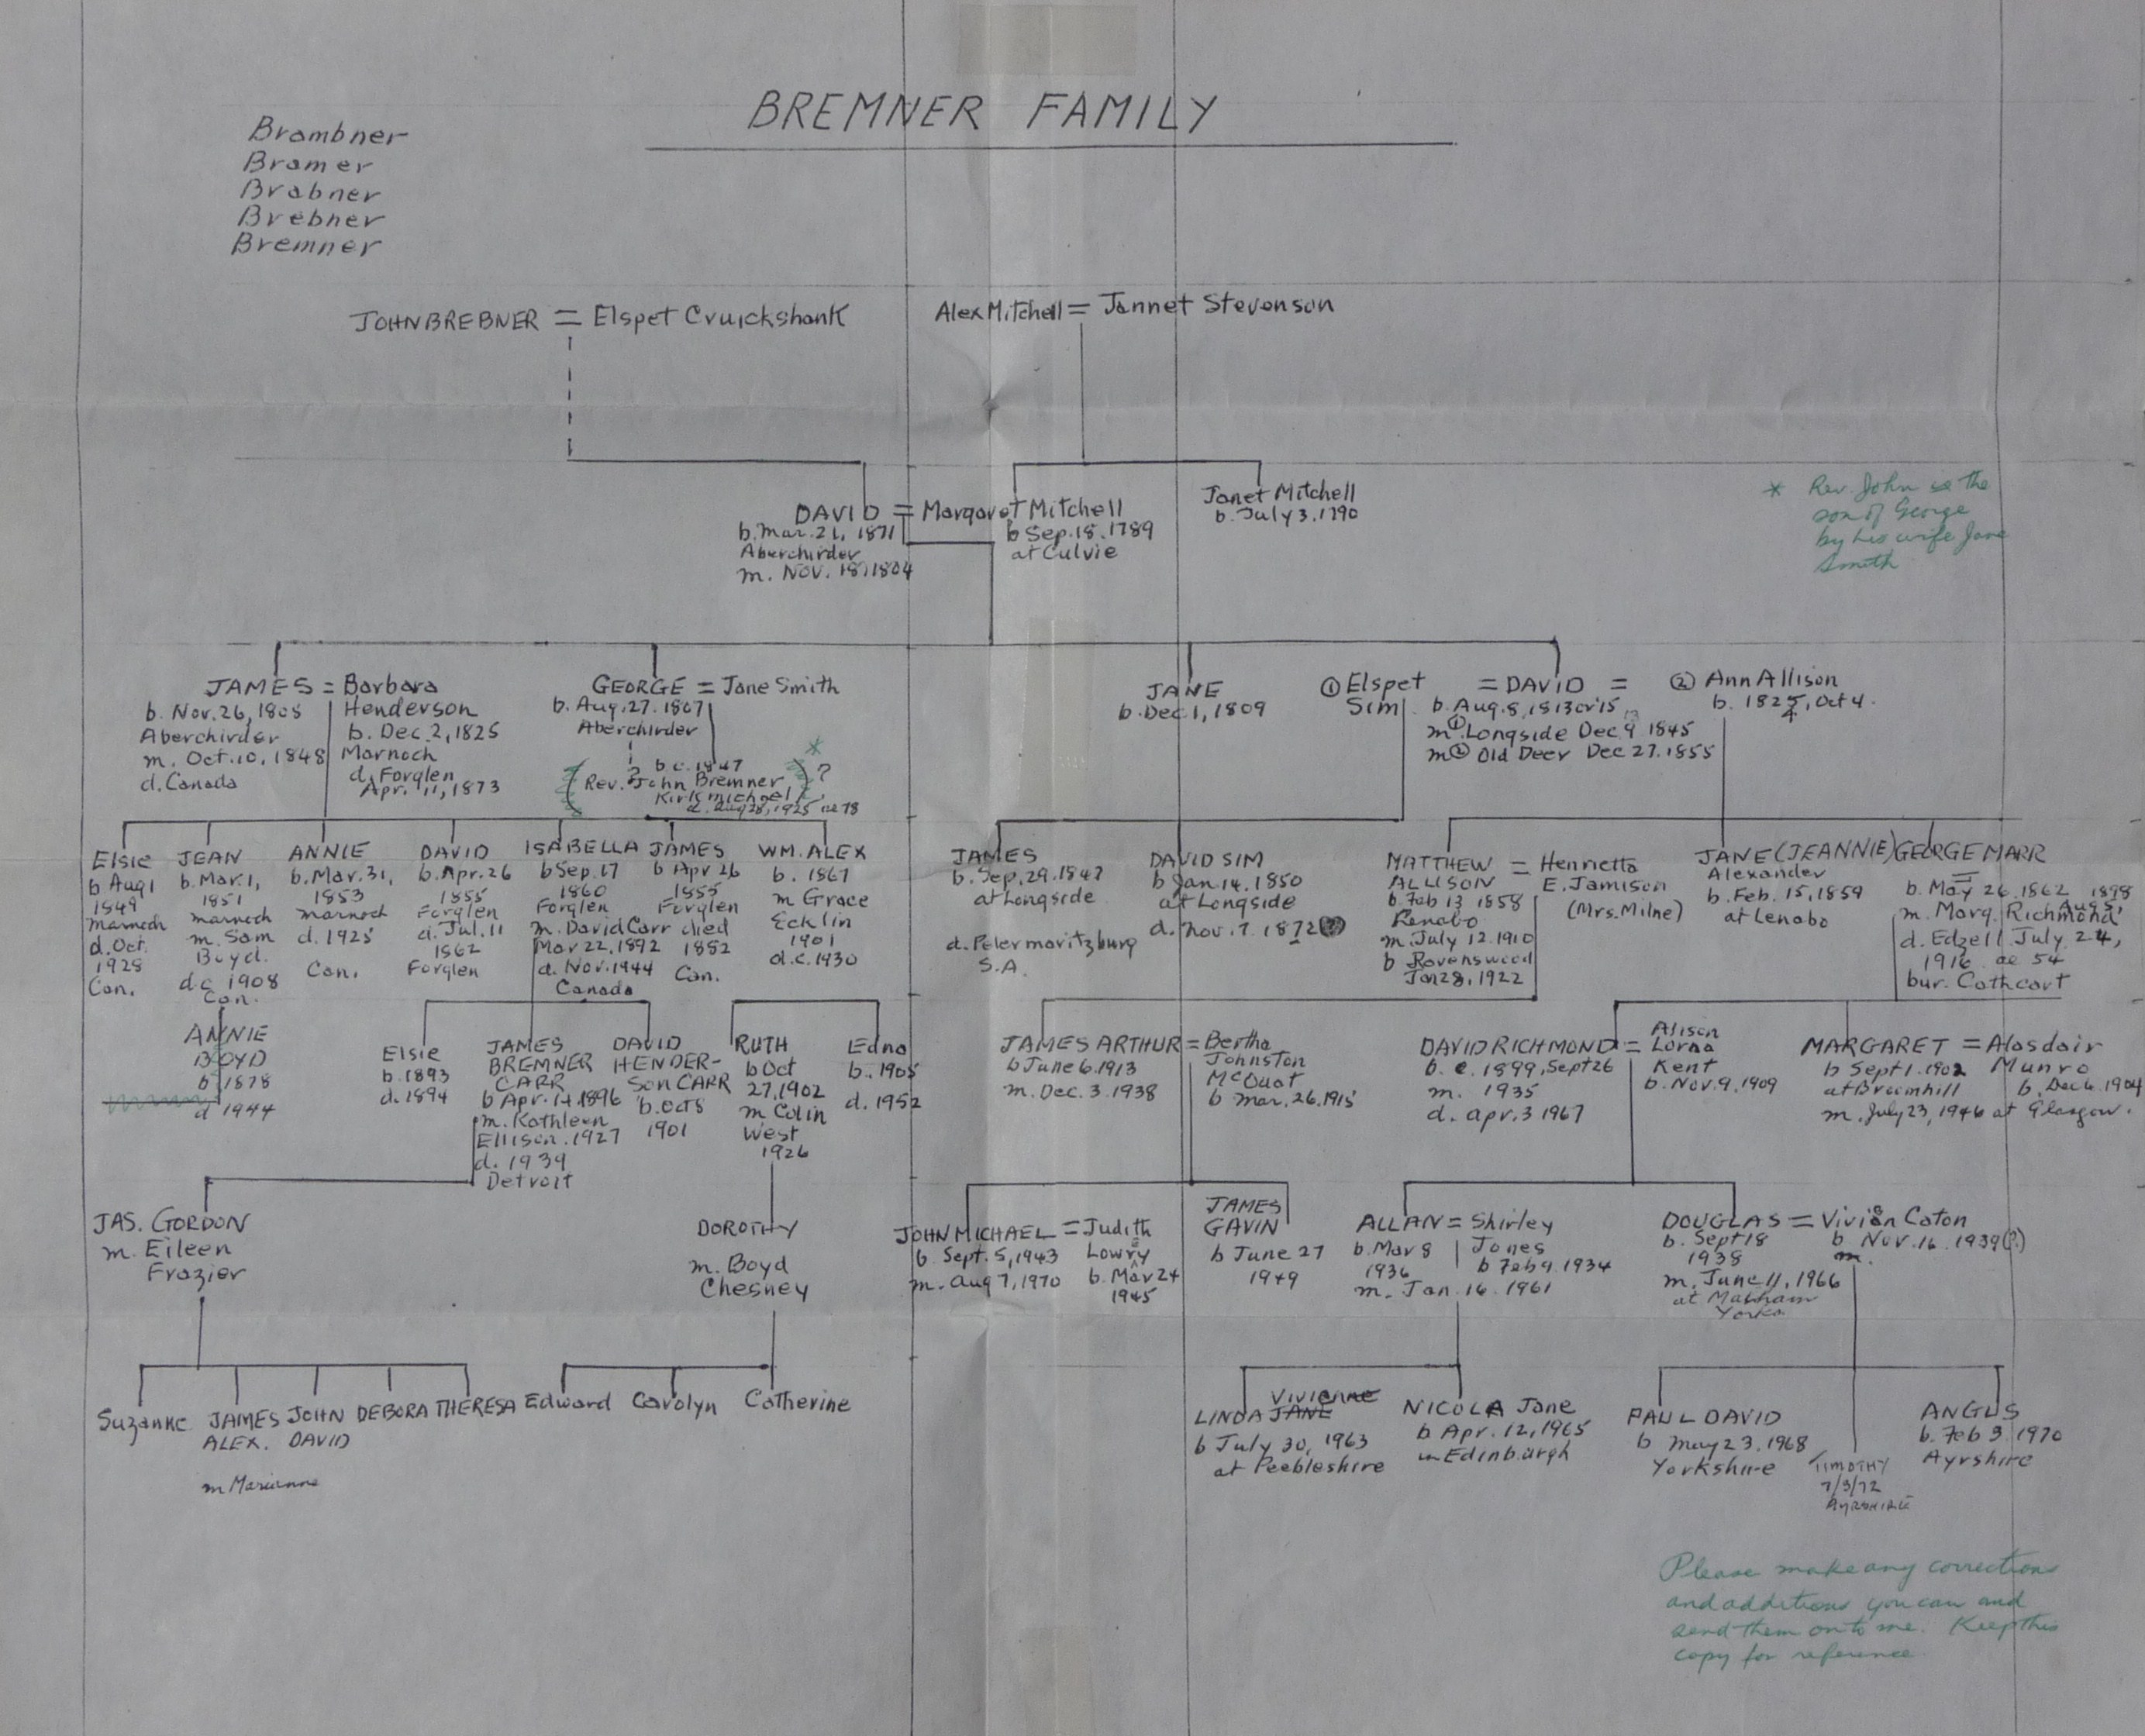 BREMNER FAMILY
Brambner
Bramer
Brabner
Brebner
Bremner
JOHN BREBNER = Elspet Cruickshank
Alex Mitchell = Jannet Stevenson
DAVID = Margaret Mitchell
b. Mar. 21, 1871
Aberchirder
m. Nov. 18, 1804
b Sep. 18. 1789
at Culvie
Janet Mitchell
b. July 3. 1790
* Rev. John is the
son of George
by his wife Jane
Smith
JAMES = Barbara
Henderson
b. Nov. 26, 1808
Aberchirder
m. Oct. 10, 1848
d. Canada
b. Dec. 2, 1825
Marnoch
d. Forglen
Apr. 11, 1873
GEORGE = Jane Smith
b. Aug. 27. 1807
Aberchirder
*
b c. 1847
( Rev. John Bremner ) ?
Kirkmichael
d. Aug 28, 1925 ae 78
JANE
b. Dec 1, 1809
① Elspet = DAVID = ② Ann Allison
Sim
b. Aug. 8, 1813 or 15
m ① Longside Dec 9 1845
m ② Old Deer Dec 27. 1855
b. 1825, Oct 4.
4
Elsie
b Aug 1
1849
Marnoch
d. Oct.
1928
Can.
JEAN
b. Mar. 1,
1851
Marnoch
m. Sam
Boyd.
d c 1908
Can.
ANNIE
b. Mar. 31,
1853
Marnoch
d. 1925
Can.
DAVID
b. Apr. 26
1855
Forglen
d. Jul. 11
1862
Forglen
ISABELLA
b Sep. 17
1860
Forglen
m. David Carr
Mar 22, 1892
d. Nov. 1944
Canada
JAMES
b Apr 26
1855
Forglen
died
1882
Can.
WM. ALEX
b. 1867
m Grace
Ecklin
1901
d. c. 1930
JAMES
b. Sep. 29. 1847
at Longside
d. Petermaritzburg
S.A.
DAVID SIM
b Jan. 14. 1850
at Longside
d. Nov. 7. 1872
MATTHEW = Henrietta
ALLISON E. Jamison
b. Feb 13 1858 (Mrs. Milne)
Lenabo
m. July 12. 1910
b Ravenswood
Jan 28, 1922
JANE (JEANNIE)
Alexander
b. Feb. 15, 1859
at Lenabo
GEORGE MARR
=
b. May 26. 1862 1898
m. Marg. Richmond, Aug 5,
d. Edzell July 24,
1916 ae 54
bur. Cathcart
ANNIE
BOYD
b 1878
d 1944
Elsie
b. 1893
d. 1894
JAMES
BREMNER
CARR
b Apr. 14. 1896
m. Kathleen
Ellison. 1927
d. 1939
Detroit
DAVID
HENDER-
SON CARR
b. Oct 8
1901
RUTH
b Oct
27, 1902
m Colin
West
1926
Edna
b. 1905
d. 1952
JAMES ARTHUR = Bertha
b June 6. 1913 Johnston
m. Dec. 3. 1938 McQuat
b Mar. 26. 1915
DAVID RICHMOND = Alison
Lorna
Kent
b. c. 1899, Sept 26
m. 1935
d. Apr. 3 1967
b. Nov. 9. 1909
MARGARET = Alasdair
b Sept 1. 1902 Munro
at Broomhill b. Dec 6. 1904
m. July 23, 1946 at Glasgow.
JAS. GORDON
m. Eileen
Frazier
DOROTHY
m. Boyd
Chesney
JOHN MICHAEL = Judith
b. Sept. 5, 1943 Lowry
m. Aug 7, 1970 b. Mar 24
1945
JAMES
GAVIN
b June 27
1949
ALLAN = Shirley
b. Mar 8 Jones
1936 b Feb 9. 1934
m. Jan. 16. 1961
DOUGLAS = Vivian Caton
b. Sept 18 b. Nov. 16. 1939 (?)
1938 m.
m. June 11, 1966
at Masham
Yorks.
Suzanne
JAMES
ALEX.
m Marianne
JOHN
DAVID
DEBORA
THERESA
Edward
Carolyn
Catherine
Vivienne
LINDA JANE
b July 30, 1963
at Peebleshire
NICOLA Jane
b Apr. 12, 1965
in Edinburgh
PAUL DAVID
b May 23. 1968
Yorkshire
TIMOTHY
7/3/72
AYRSHIRE
ANGUS
b. Feb 3. 1970
Ayrshire
Please make any corrections
and additions you can and
send them on to me. Keep this
copy for reference